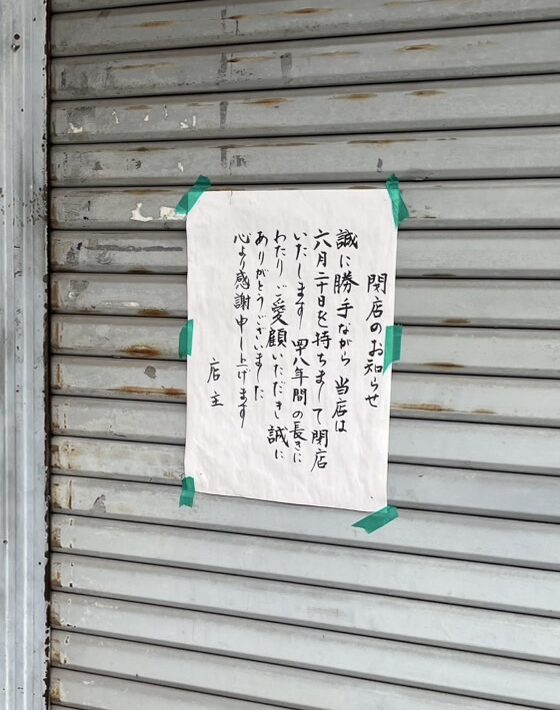 閉店のお知らせ
誠に勝手ながら 当店は
六月二十日を持ちまして閉店
いたします 四八年間の長きに
わたりご愛顧いただき誠に
ありがとうございました
心より感謝申し上げます
店主